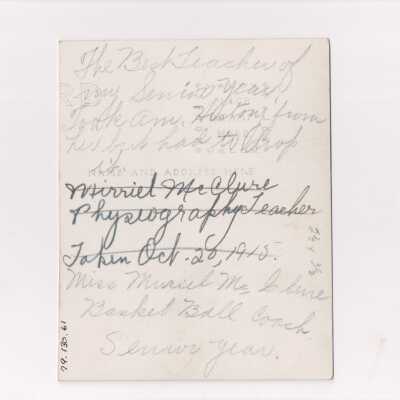 The Best Teacher of
my Senior Year
Took Am. History from
her but had to drop
it
NAME AND ADDRESS
Mirriel McClure
Physiography Teacher
Taken Oct. 20, 1915.
Miss Muriel Mc Clure
Basket Ball Coach
Senior Year.
79.130.61